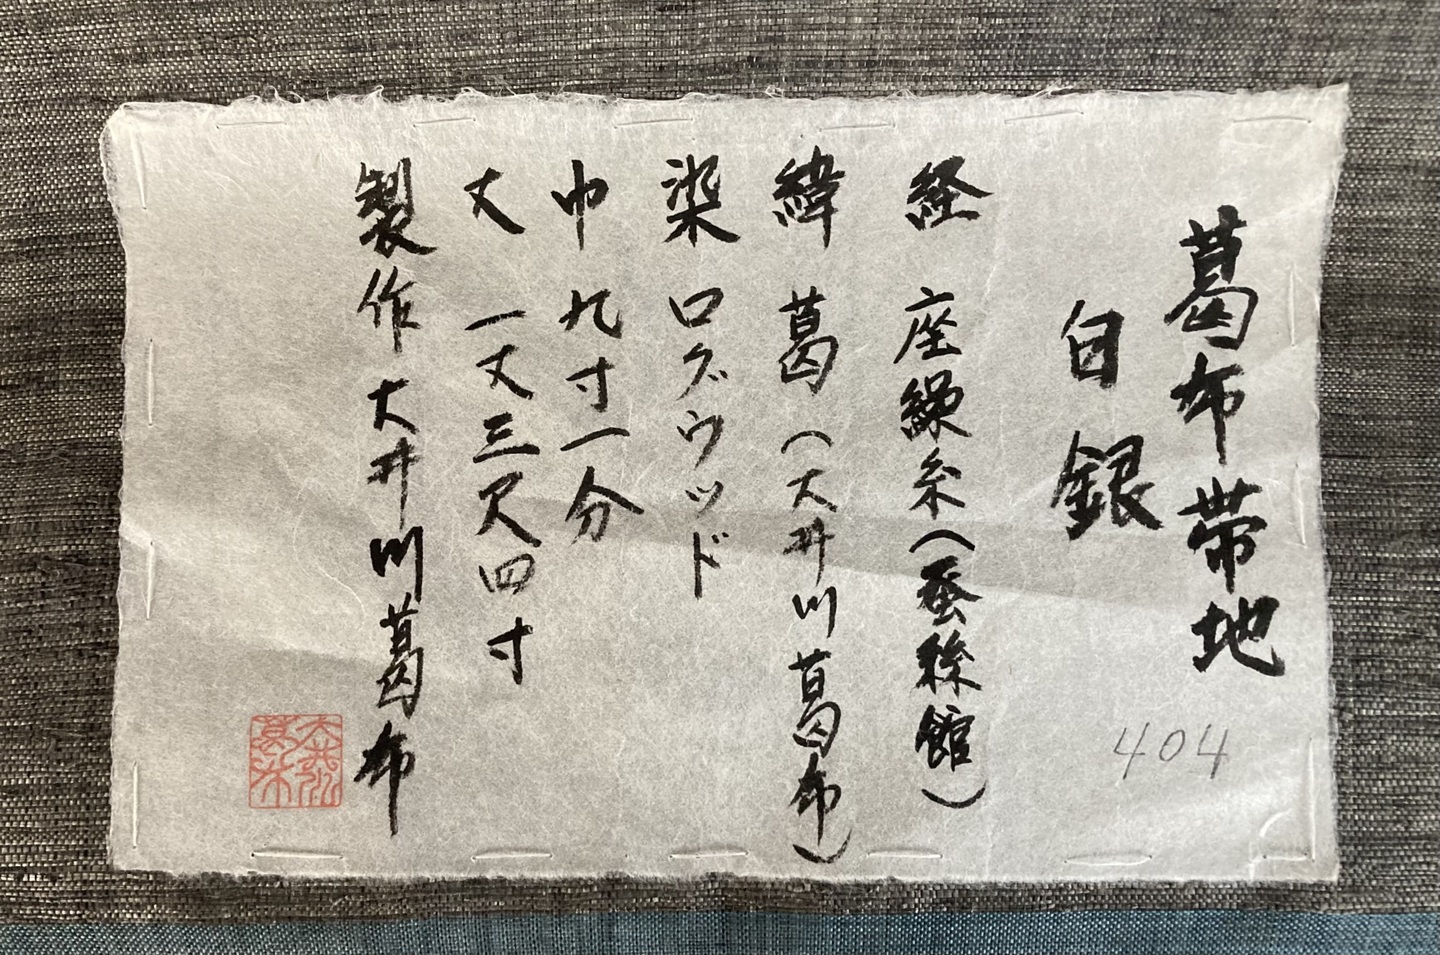 葛布帯地
白銀
404
経 座繰糸(蚕絲館)
緯 葛(大井川葛布)
染 ログウッド
巾 九寸一分
丈 一丈三尺四寸
製作 大井川葛布
大井川葛布